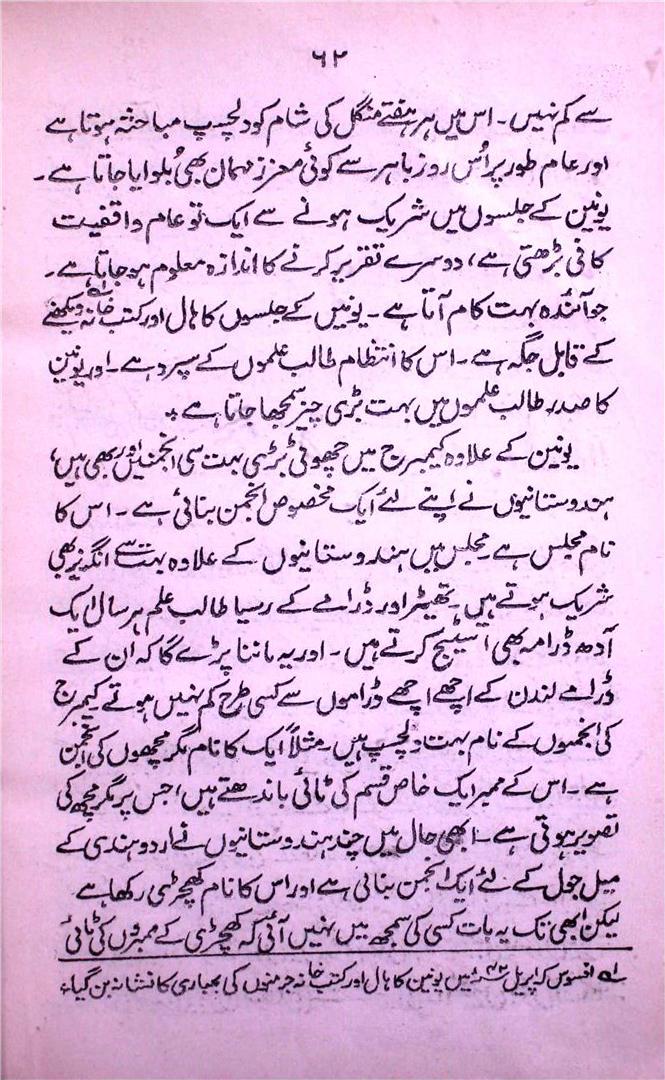 ۶۲
سے کم نہیں۔ اس میں ہر ہفتے منگل کی شام کو دلچسپ مباحثہ ہوتا ہے
اور عام طور پر اُس روز باہر سے کوئی معزز مہمان بھی بُلوایا جاتا ہے۔
یونین کے جلسوں میں شریک ہونے سے ایک تو عام واقفیت
کافی بڑھتی ہے، دوسرے تقریر کرنے کا اندازہ معلوم ہو جاتا ہے۔
جو آئندہ بہت کام آتا ہے۔ یونین کے جلسوں کا ہال اور کتب خانہ ؎۱ دیکھنے
کے قابل جگہ ہے۔ اس کا انتظام طالب علموں کے سپرد ہے۔ اور یونین
کا صدر طالب علموں میں بہت بڑی چیز سمجھا جاتا ہے ٭
یونین کے علاوہ کیمبرج میں چھوٹی بڑی بہت سی انجمنیں اور بھی ہیں،
ہندوستانیوں نے اپنے لئے ایک مخصوص انجمن بنائی ہے۔ اس کا
نام مجلس ہے۔ مجلس میں ہندوستانیوں کے علاوہ بہت سے انگریز بھی
شریک ہوتے ہیں۔ تھیٹر اور ڈرامے کے رسیا طالب علم ہر سال ایک
آدھ ڈرامہ بھی اسٹیج کرتے ہیں۔ اور یہ ماننا پڑے گا کہ ان کے
ڈرامے لندن کے اچھے اچھے ڈراموں سے کسی طرح کم نہیں ہوتے کیمبرج
کی انجمنوں کے نام بہت دلچسپ ہیں۔ مثلاً ایک کا نام مگرمچھوں کی انجمن
ہے۔ اس کے ممبر ایک خاص قسم کی ٹائی باندھتے ہیں، جس پر مگرمچھ کی
تصویر ہوتی ہے۔ ابھی حال میں چند ہندوستانیوں نے اردو ہندی کے
میل جول کے لئے ایک انجمن بنائی ہے اور اس کا نام کھچڑی رکھا ہے
لیکن ابھی تک یہ بات کسی کی سمجھ میں نہیں آئی کہ کھچڑی کے ممبروں کی ٹائی
؎۱ افسوس کہ اپریل ۴۲ء میں یونین کا ہال اور کتب خانہ جرمنوں کی بمباری کا نشانہ بن گیا ٭